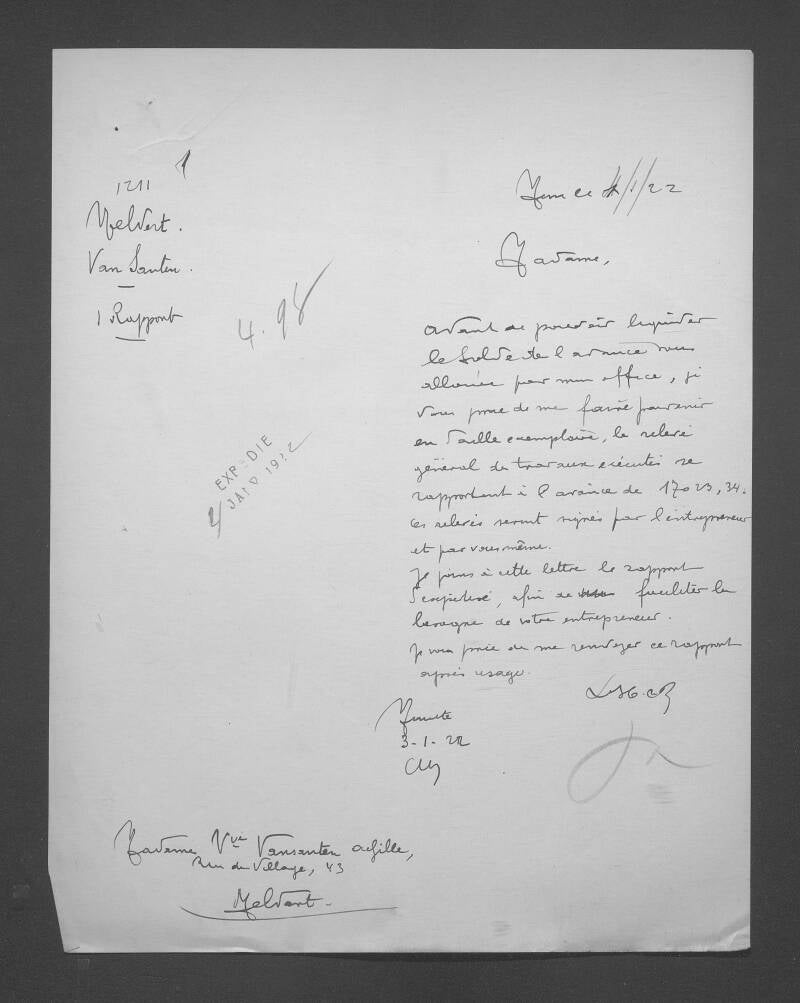 1
1211
Meldert.
Van Santen.
1 Rapport
4.98
EXPEDIE
4 JAN 1922
ce 4/1/22
Madame,
Avant de pouvoir liquider
le solde de l'avance vous
allouée par mon office, je
vous prie de me faire parvenir
en exemplaire, le relevé
général de travaux exécutés se
rapportant à l'avance de 17023,34.
Ces relevés seront signés par l'entrepreneur
et par vous même.
Je joins à cette lettre le rapport
d'expertise, afin de faciliter la
besogne de votre entrepreneur.
Je vous prie de me renvoyer ce rapport
après usage.
Minute
3-1-22
Madame Vve Vansanten Achille,
Rue du Village, 43
Meldert.